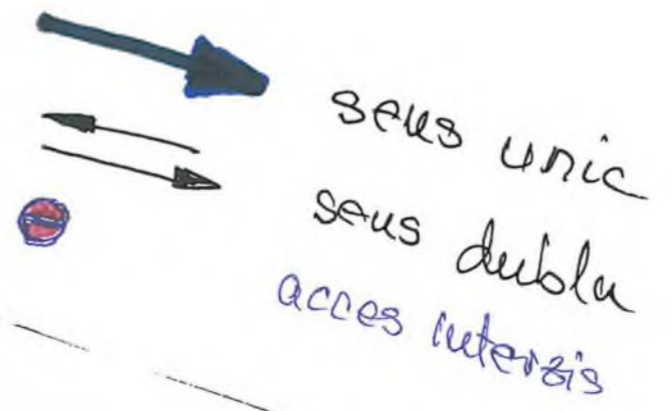 sens unic
sens dublu
acces interzis